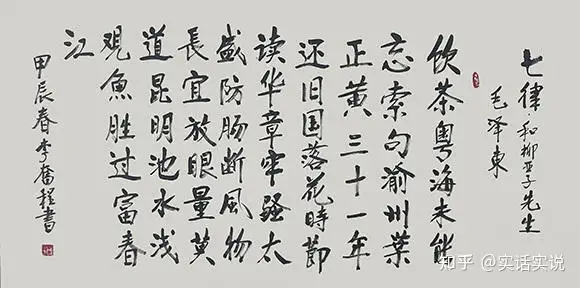 七律·和柳亚子先生
毛泽東
饮茶粤海未能
忘索句渝州葉
正黄三十一年
还旧国落花時節
读华章牢騷太
盛防肠断風物
長宜放眼量莫
道昆明池水浅
观魚胜过富春
江
甲辰春李奮程書
知乎 @实话实说